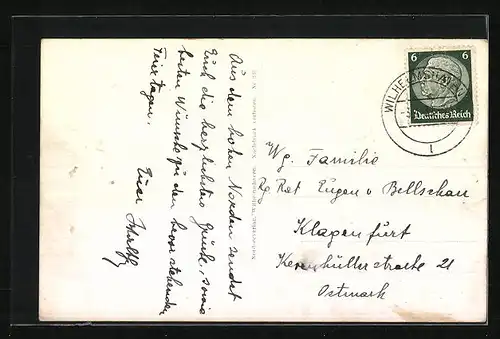 Aus dem hohen Norden sendet
Euch die herzlichsten Grüße, sowie
besten Wünsche zu den bevorstehenden
Feiertagen.
Euer
6 6
Deutsches Reich
WILHELMSHAVEN
1
Wg. Familie
Rg Rat Eugen v Bellschan
Klagenfurt
Kevenhüllerstraße 21
Ostmark